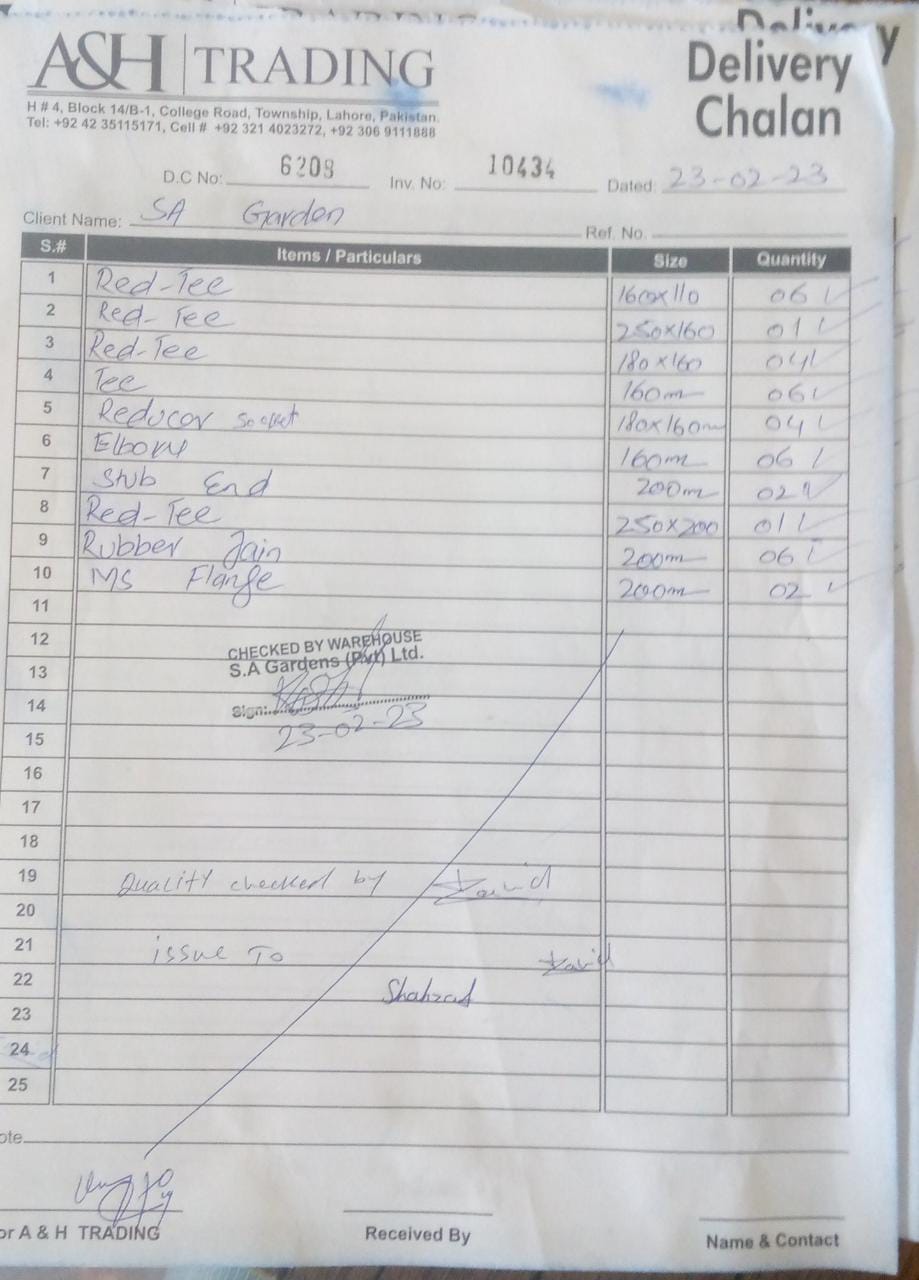 Delivery
A&H TRADING
Delivery Chalan
H # 4, Block 14/B-1, College Road, Township, Lahore, Pakistan.
Tel: +92 42 35115171, Cell # +92 321 4023272, +92 306 9111888
D.C No: 6208 Inv. No: 10434 Dated: 23-02-23
Client Name: SA Garden Ref. No.
S.# Items / Particulars Size Quantity
1 Red-Tee 160x110 06
2 Red-Tee 250x160 01
3 Red-Tee 180x160 04
4 Tee 160m 06
5 Reducor socket 180x160m 04
6 Elbow 160m 06
7 Stub End 200m 02
8 Red-Tee 250x200 01
9 Rubber Jain 200m 06
10 MS Flange 200m 02
11
12
CHECKED BY WAREHOUSE
13
S.A Gardens (Pvt) Ltd.
14
Sign:
15
23-02-23
16
17
18
19 Quality checked by
20
21 issue To
22 Shahzad
23
24
25
ote
or A & H TRADING Received By Name & Contact